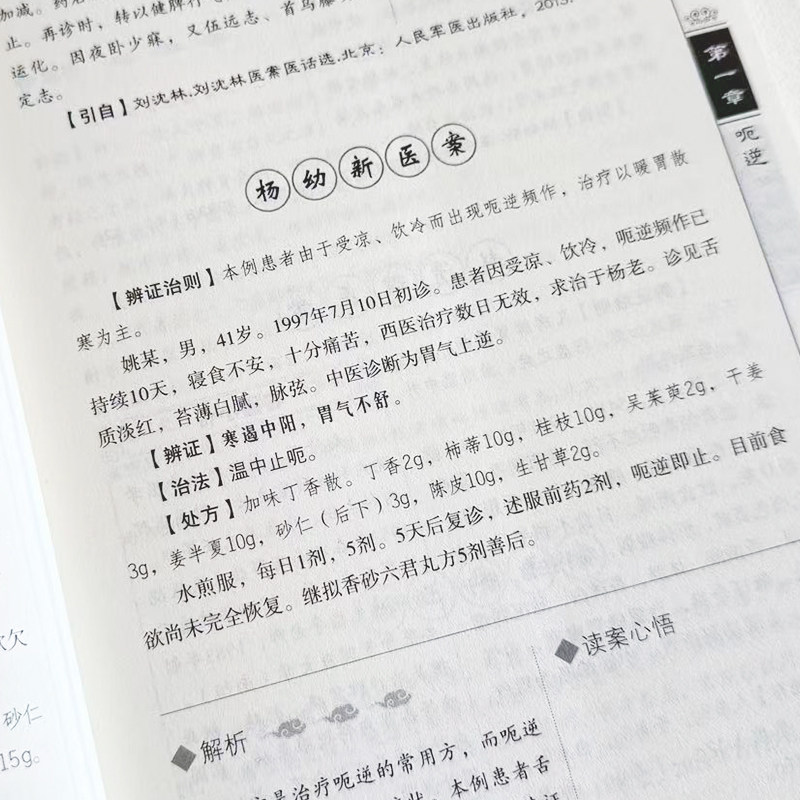 加减。药
止。再诊时，转以健脾行
运化。因夜卧少寐，又伍远志、首乌藤
定志。
【引自】刘沈林.刘沈林医案医话选.北京：人民军医出版社，2013.
杨幼新医案
【辨证治则】本例患者由于受凉、饮冷而出现呃逆频作，治疗以暖胃散
寒为主。
姚某，男，41岁。1997年7月10日初诊。患者因受凉、饮冷，呃逆频作已
持续10天，寝食不安，十分痛苦，西医治疗数日无效，求治于杨老。诊见舌
质淡红，苔薄白腻，脉弦。中医诊断为胃气上逆。
【辨证】寒遏中阳，胃气不舒。
【治法】温中止呃。
【处方】加味丁香散。丁香2g，柿蒂10g，桂枝10g，吴茱萸2g，干姜
3g，姜半夏10g，砂仁（后下）3g，陈皮10g，生甘草2g。
水煎服，每日1剂，5剂。5天后复诊，述服前药2剂，呃逆即止。目前食
欲尚未完全恢复。继拟香砂六君丸方5剂善后。
解析
是治疗呃逆的常用方，而呃逆
本例患者舌
读案心悟
第一章
呃逆
欠
砂仁
15g。